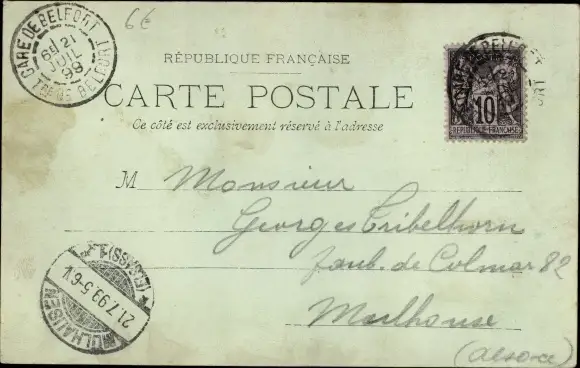 6€
GARE DE BELFORT
6E 21
JUIL
99
BELFORT
RÉPUBLIQUE FRANÇAISE
CARTE POSTALE
Ce côté est exclusivement réservé à l'adresse
10
RÉPUBLIQUE FRANÇAISE
M Monsieur
Georges Tribelhorn
faub. de Colmar 82
Mulhouse
(Alsace)
MÜLHAUSEN
21.7.99.5-6V.
(ELSASS) 1